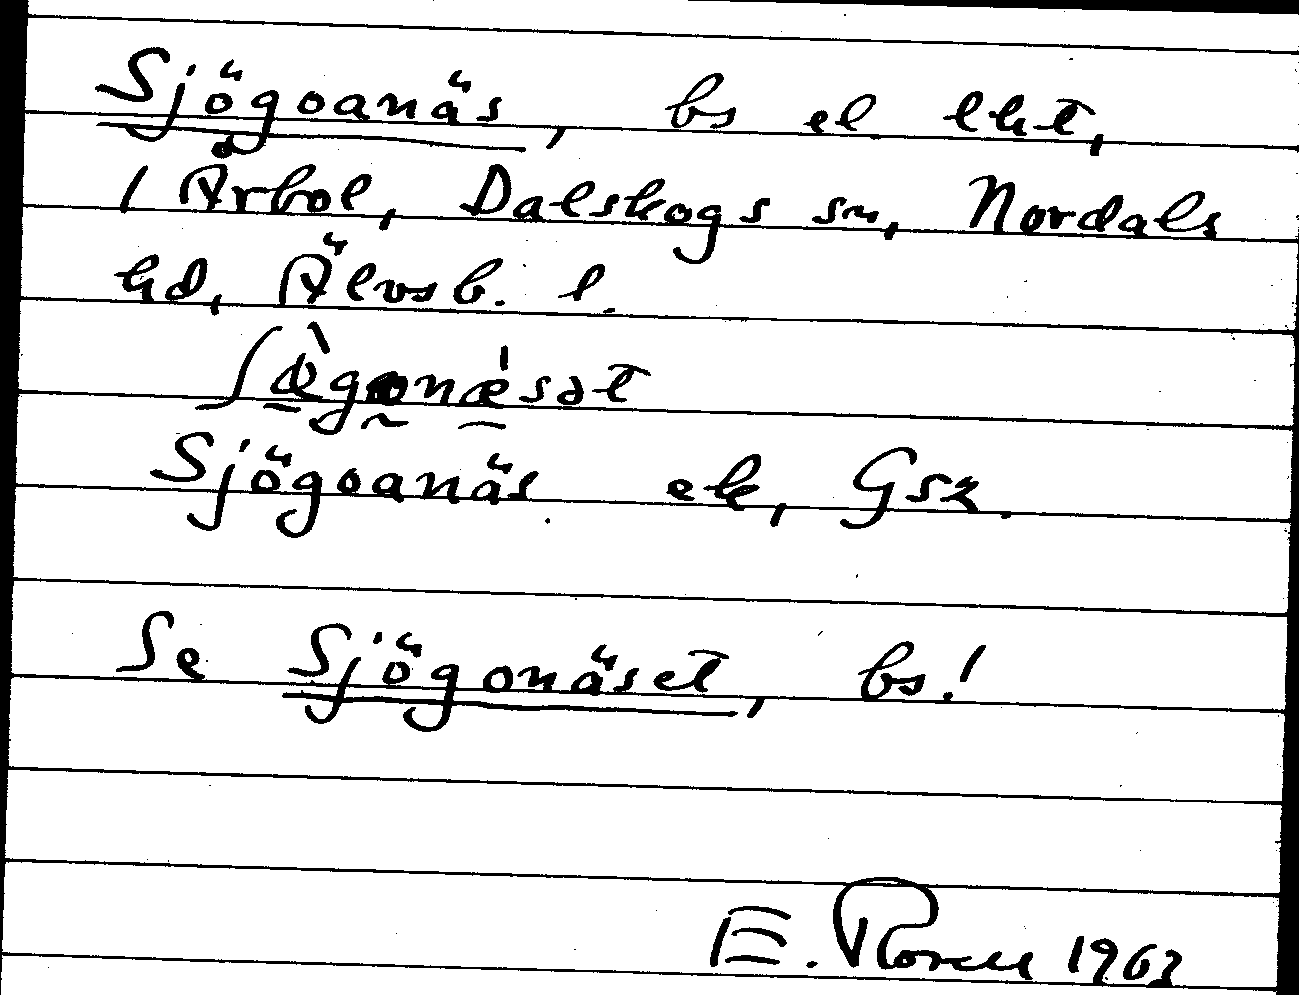 Sjögoanäs, bs el lht,
i Årbol, Dalskogs sn, Nordals
hd, Älvsb. l.
Sjögoanäs ek, Gsk.
Se Sjögonäset, bs!
E. Rosell 1963